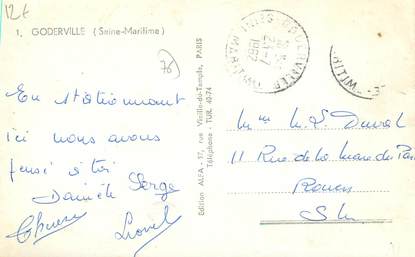 12€
1. GODERVILLE (Seine-Maritime)
76
En stationnant
ici nous avons
pensé à toi
Danièle Serge
Lionel
Edition ALFA - 57, rue Vieille-du-Temple, PARIS
Téléphone : TUR. 40-74
GODERVILLE
Mme M. L. Duval
11 Rue de la Mare du Parc
Rouen
S M